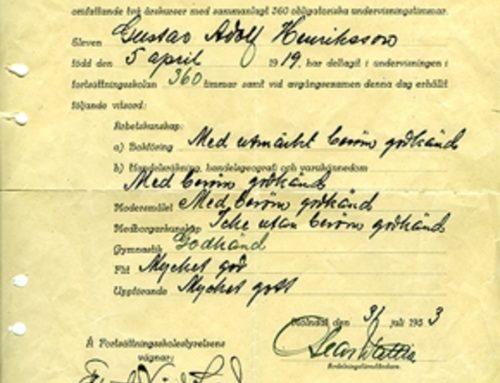 omfattande två årskurser med sammanlagt 360 obligatoriska undervisningstimmar.
Eleven Gustav Adolf Henriksson
född den 5 april 1919. har deltagit i undervisningen i
fortsättningsskolan 360 timmar samt vid avgångsexamen denna dag erhållit
följande vitsord:
Arbetskunskap:
a) Bokföring Med utmärkt beröm godkänd
b) Handelsräkning, handelsgeografi och varukännedom
Med beröm godkänd
Modersmålet Med beröm godkänd
Medborgarkunskap Icke utan beröm godkänd
Gymnastik Godkänd
Flit Mycket god
Uppförande Mycket gott
den 31 juli 1933
Å Fortsättningsskolestyrelsens
vägnar:
Avdelningsföreståndare.